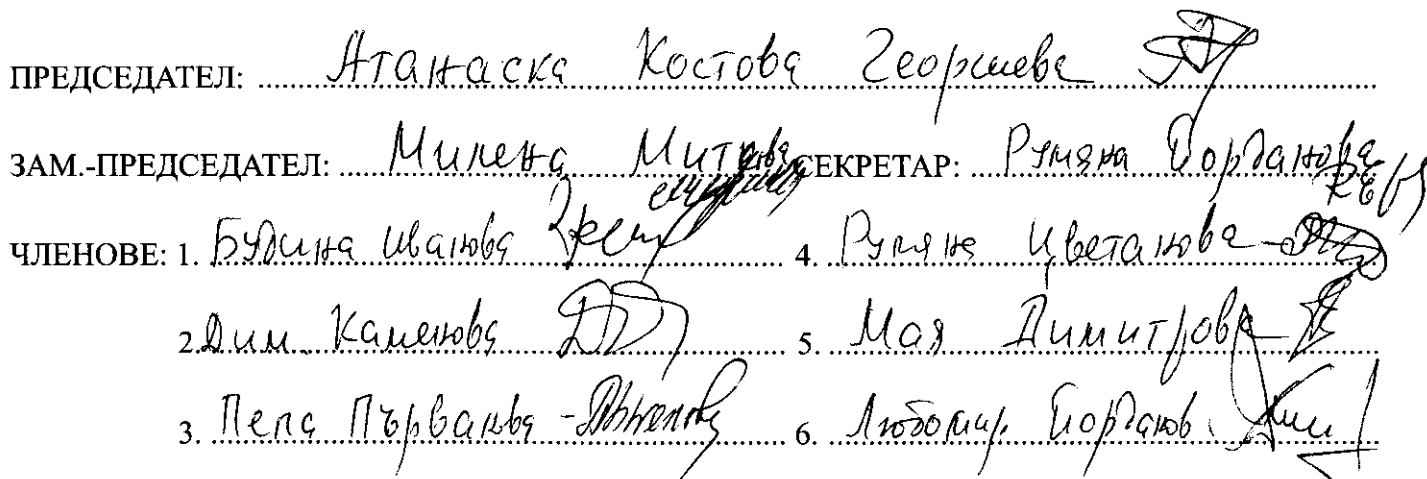 ПРЕДСЕДАТЕЛ: Атанаска Костова Георгиева
ЗАМ.-ПРЕДСЕДАТЕЛ: Милена Миткова СЕКРЕТАР: Румяна Йорданова
ЧЛЕНОВЕ: 1. Будина Иванова 4. Румяна Цветанова
2. Дим. Каменова 5. Мая Димитрова
3. Пепа Първанова 6. Любомир Йорданов